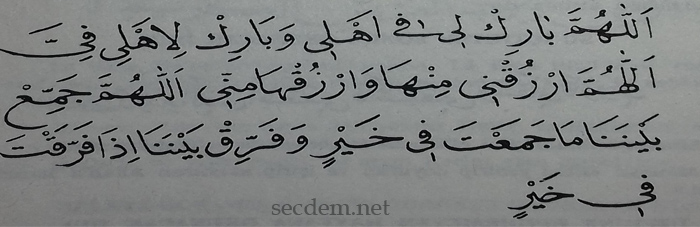 اَللّٰهُمَّ بَارِكْ لِى فٖى اَهْلِى وَبَارِكْ لِاَهْلِى فِىَّ
اَللّٰهُمَّ ارْزُقْنِى مِنْهَا وَارْزُقْهَا مِنّٖى اَللّٰهُمَّ جَمِّعْ
بَيْنَنَا مَا جَمَعْتَ فٖى خَيْرٍ وَفَرِّقْ بَيْنَنَا اِذَا فَرَّقْتَ
فٖى خَيْرٍ
secdem.net